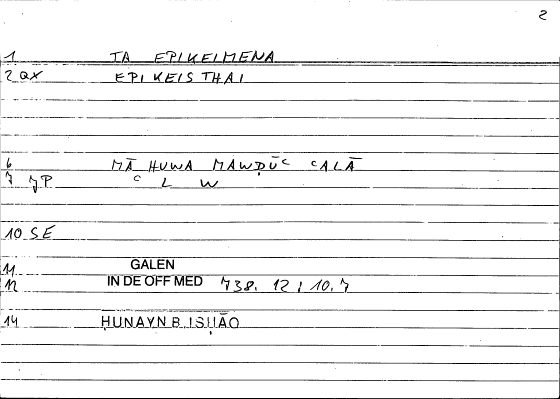 2
1 TA EPIKEIMENA
2 QX EPIKEISTHAI
6 MĀ HUWA MAWḌŪᶜ ᶜALĀ
7 JP ᶜ L W
10 SE
11 GALEN
12 IN DE OFF MED 738. 12 ; 10.7
14 ḤUNAYN B. ISḤĀQ